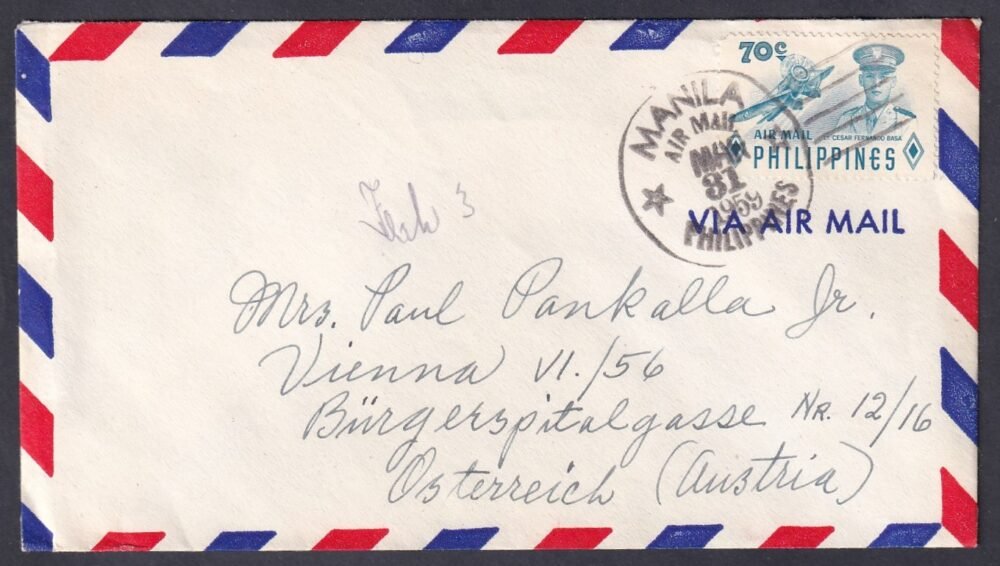 70c
LT. CESAR FERNANDO BASA
AIR MAIL
PHILIPPINES
MANILA
AIR MAIL
MAR
31
1959
PHILIPPINES
VIA AIR MAIL
3
Mrs. Paul Pankalla Jr.
Vienna VI./56
Bürgerspitalgasse Nr. 12/16
Österreich (Austria)